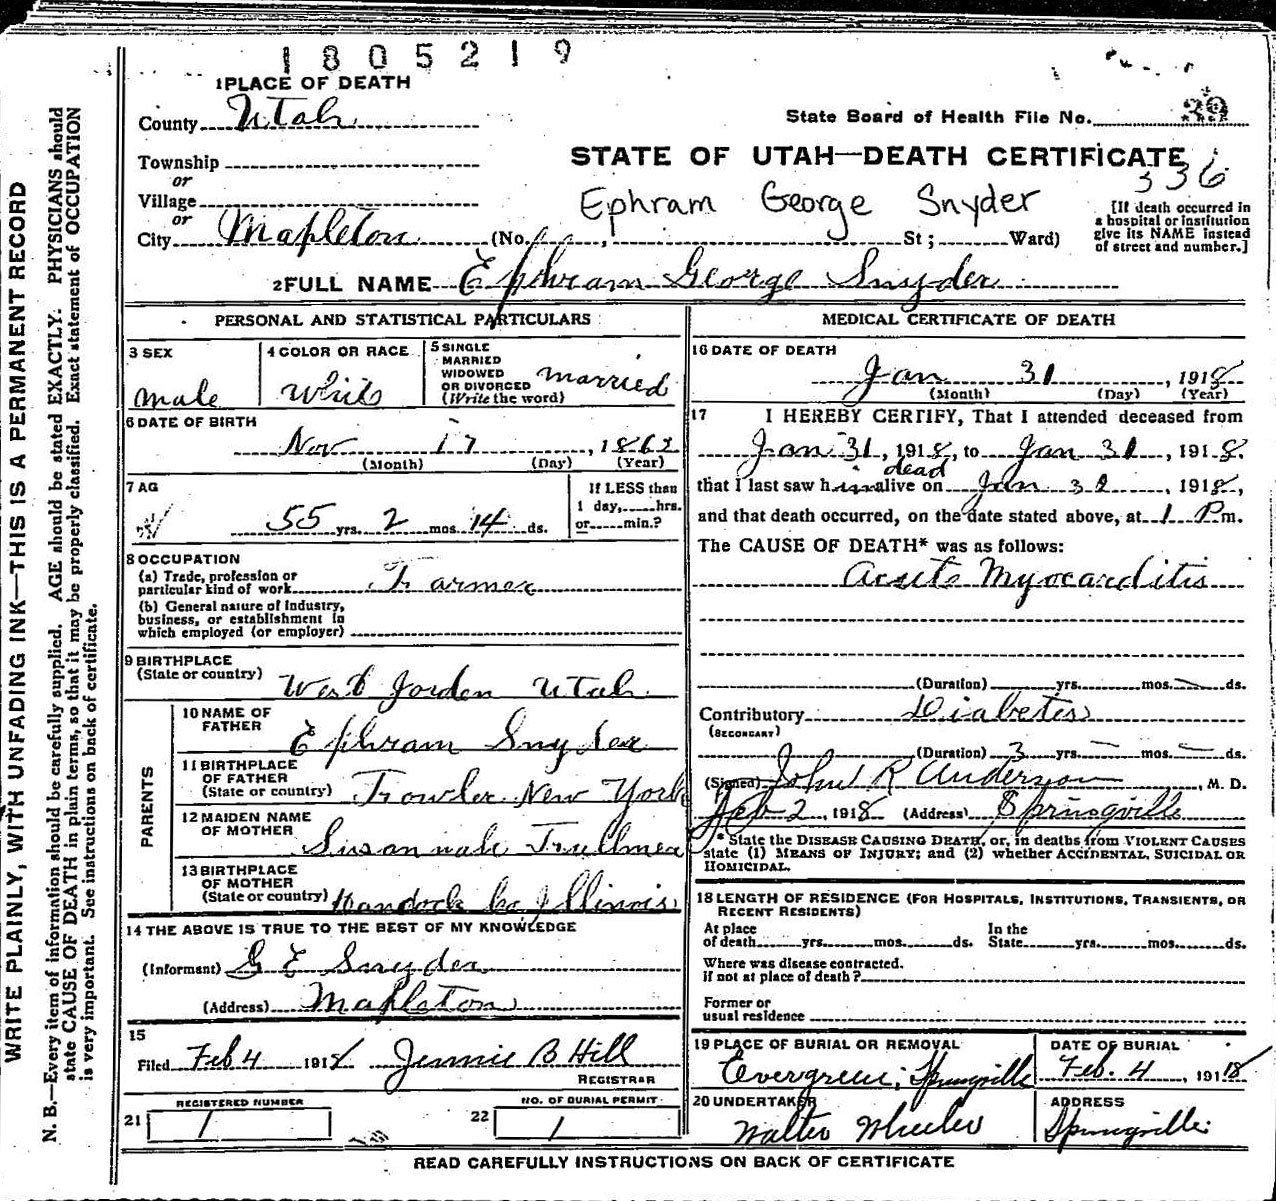 1805219
1 PLACE OF DEATH
County Utah
State Board of Health File No.
Township
or
Village
or
City Mapleton (No. , St; Ward)
STATE OF UTAH—DEATH CERTIFICATE
336
Ephram George Snyder
[If death occurred in
a hospital or institution
give its NAME instead
of street and number.]
2 FULL NAME Ephram George Snyder
PERSONAL AND STATISTICAL PARTICULARS
3 SEX
male
4 COLOR OR RACE
White
5 SINGLE
MARRIED
WIDOWED
OR DIVORCED
(Write the word)
married
6 DATE OF BIRTH
Nov 17, 1862
(Month) (Day) (Year)
7 AG
55 yrs. 2 mos. 14 ds.
If LESS than
1 day, hrs.
or min.?
8 OCCUPATION
(a) Trade, profession or
particular kind of work Farmer
(b) General nature of industry,
business, or establishment in
which employed (or employer)
9 BIRTHPLACE
(State or country) West Jorden Utah
PARENTS
10 NAME OF
FATHER
Ephram Snyder
11 BIRTHPLACE
OF FATHER
(State or country) Fowler New York
12 MAIDEN NAME
OF MOTHER
Susannah Trullmer
13 BIRTHPLACE
OF MOTHER
(State or country) Handock Co Illinois
14 THE ABOVE IS TRUE TO THE BEST OF MY KNOWLEDGE
(Informant) G E Snyder
(Address) Mapleton
15
Filed Feb 4 1918 Jennie B Hill
REGISTRAR
21 REGISTERED NUMBER
1
22 NO. OF BURIAL PERMIT
1
MEDICAL CERTIFICATE OF DEATH
16 DATE OF DEATH
Jan 31, 1918
(Month) (Day) (Year)
17 I HEREBY CERTIFY, That I attended deceased from
Jan 31, 1918, to Jan 31, 1918.
dead
that I last saw him alive on Jan 31, 1918,
and that death occurred, on the date stated above, at 1 P m.
The CAUSE OF DEATH* was as follows:
Acute Myocarditis
(Duration) yrs. mos. ds.
Contributory Diabetes
(SECONDARY)
(Duration) 3 yrs. — mos. — ds.
(Signed) John R Anderson, M. D.
Feb 2, 1918 (Address) Springville
* State the DISEASE CAUSING DEATH, or, in deaths from VIOLENT CAUSES
state (1) MEANS OF INJURY; and (2) whether ACCIDENTAL, SUICIDAL OR
HOMICIDAL.
18 LENGTH OF RESIDENCE (FOR HOSPITALS, INSTITUTIONS, TRANSIENTS, OR
RECENT RESIDENTS)
At place
of death yrs. mos. ds.
In the
State yrs. mos. ds.
Where was disease contracted.
if not at place of death?
Former or
usual residence
19 PLACE OF BURIAL OR REMOVAL
Evergreen, Springville
DATE OF BURIAL
Feb. 4, 1918
20 UNDERTAKER
Walter Wheeler
ADDRESS
Springville
READ CAREFULLY INSTRUCTIONS ON BACK OF CERTIFICATE
WRITE PLAINLY, WITH UNFADING INK—THIS IS A PERMANENT RECORD
N. B.—Every item of information should be carefully supplied. AGE should be stated EXACTLY. PHYSICIANS should
state CAUSE OF DEATH in plain terms, so that it may be properly classified. Exact statement of OCCUPATION
is very important. See instructions on back of certificate.